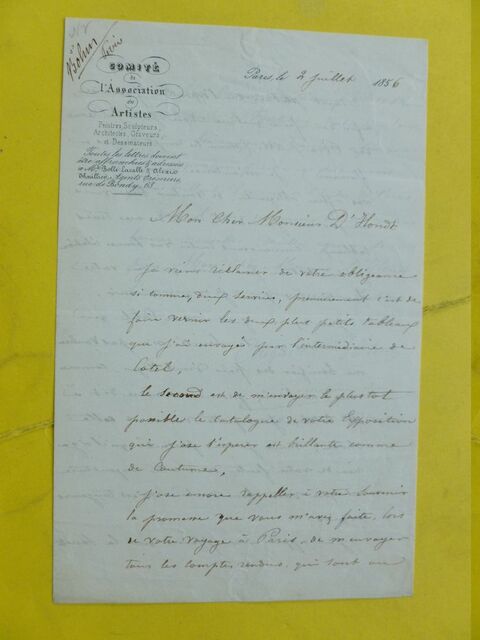 Böhm
COMITÉ
de
l'Association
des
Artistes
Peintres, Sculpteurs,
Architectes, Graveurs,
et Dessinateurs
Toutes les lettres doivent
être affranchies & adressées
à Mr. Bolle-Lasalle & Alexis
Agents Trésoriers
rue de Bondy, 68.
Paris, le 2 Juillet 1856
Mon Cher Monsieur D'Hondt
Je viens réclamer de votre obligeance
si connue, deux services, premièrement c'est de
faire vernir les deux plus petits tableaux
que j'ai envoyés par l'intermédiaire de
Catel,
le second est de m'envoyer le plus tot
possible le Catalogue de votre Exposition
qui j'ose l'espérer est brillante comme
de Coutume,
J'ose encore rappeller à votre Souvenir
la promesse que vous m'avez faite, lors
de votre voyage à Paris, de m'envoyer
tous les comptes rendus, qui sont au